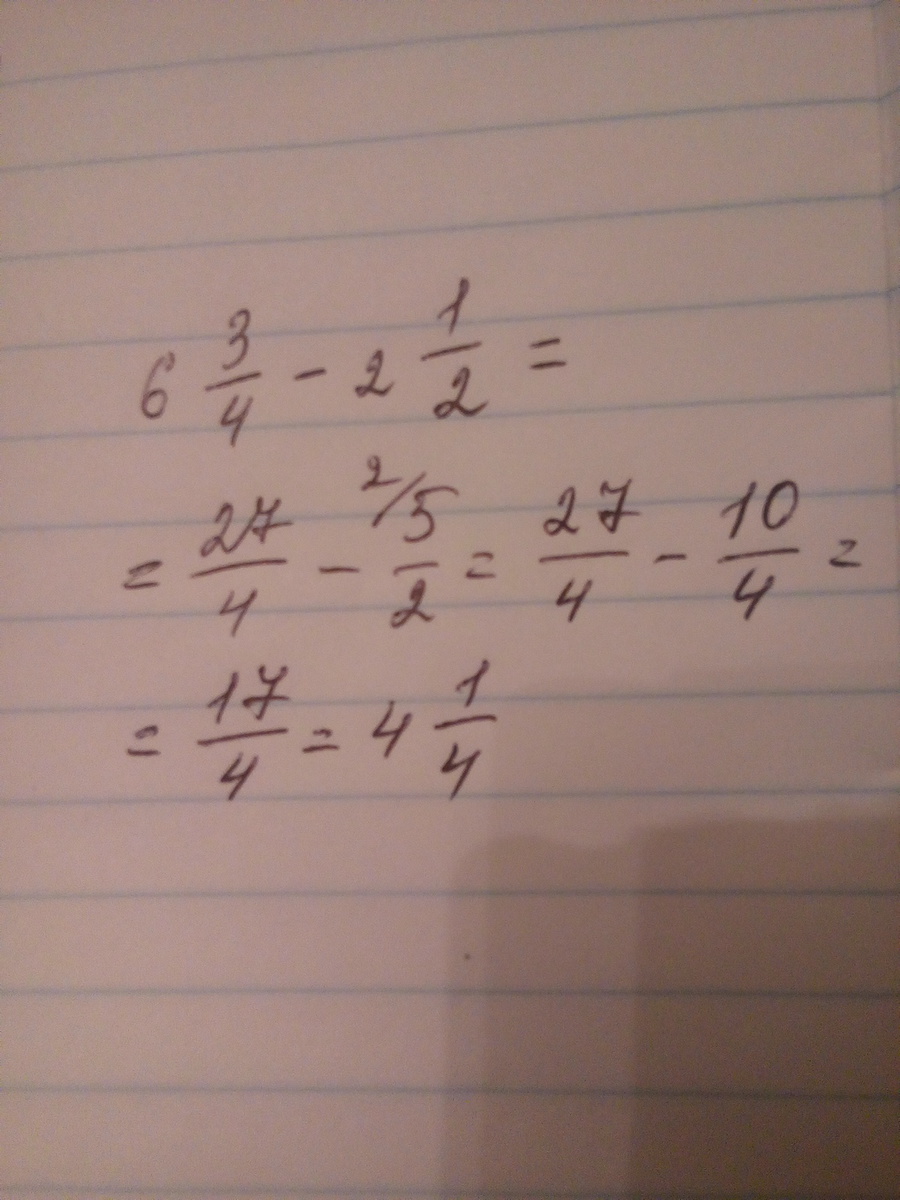 6 3/4 - 2 1/2 =
= 27/4 - ²⁄5/2 = 27/4 - 10/4 =
= 17/4 = 4 1/4